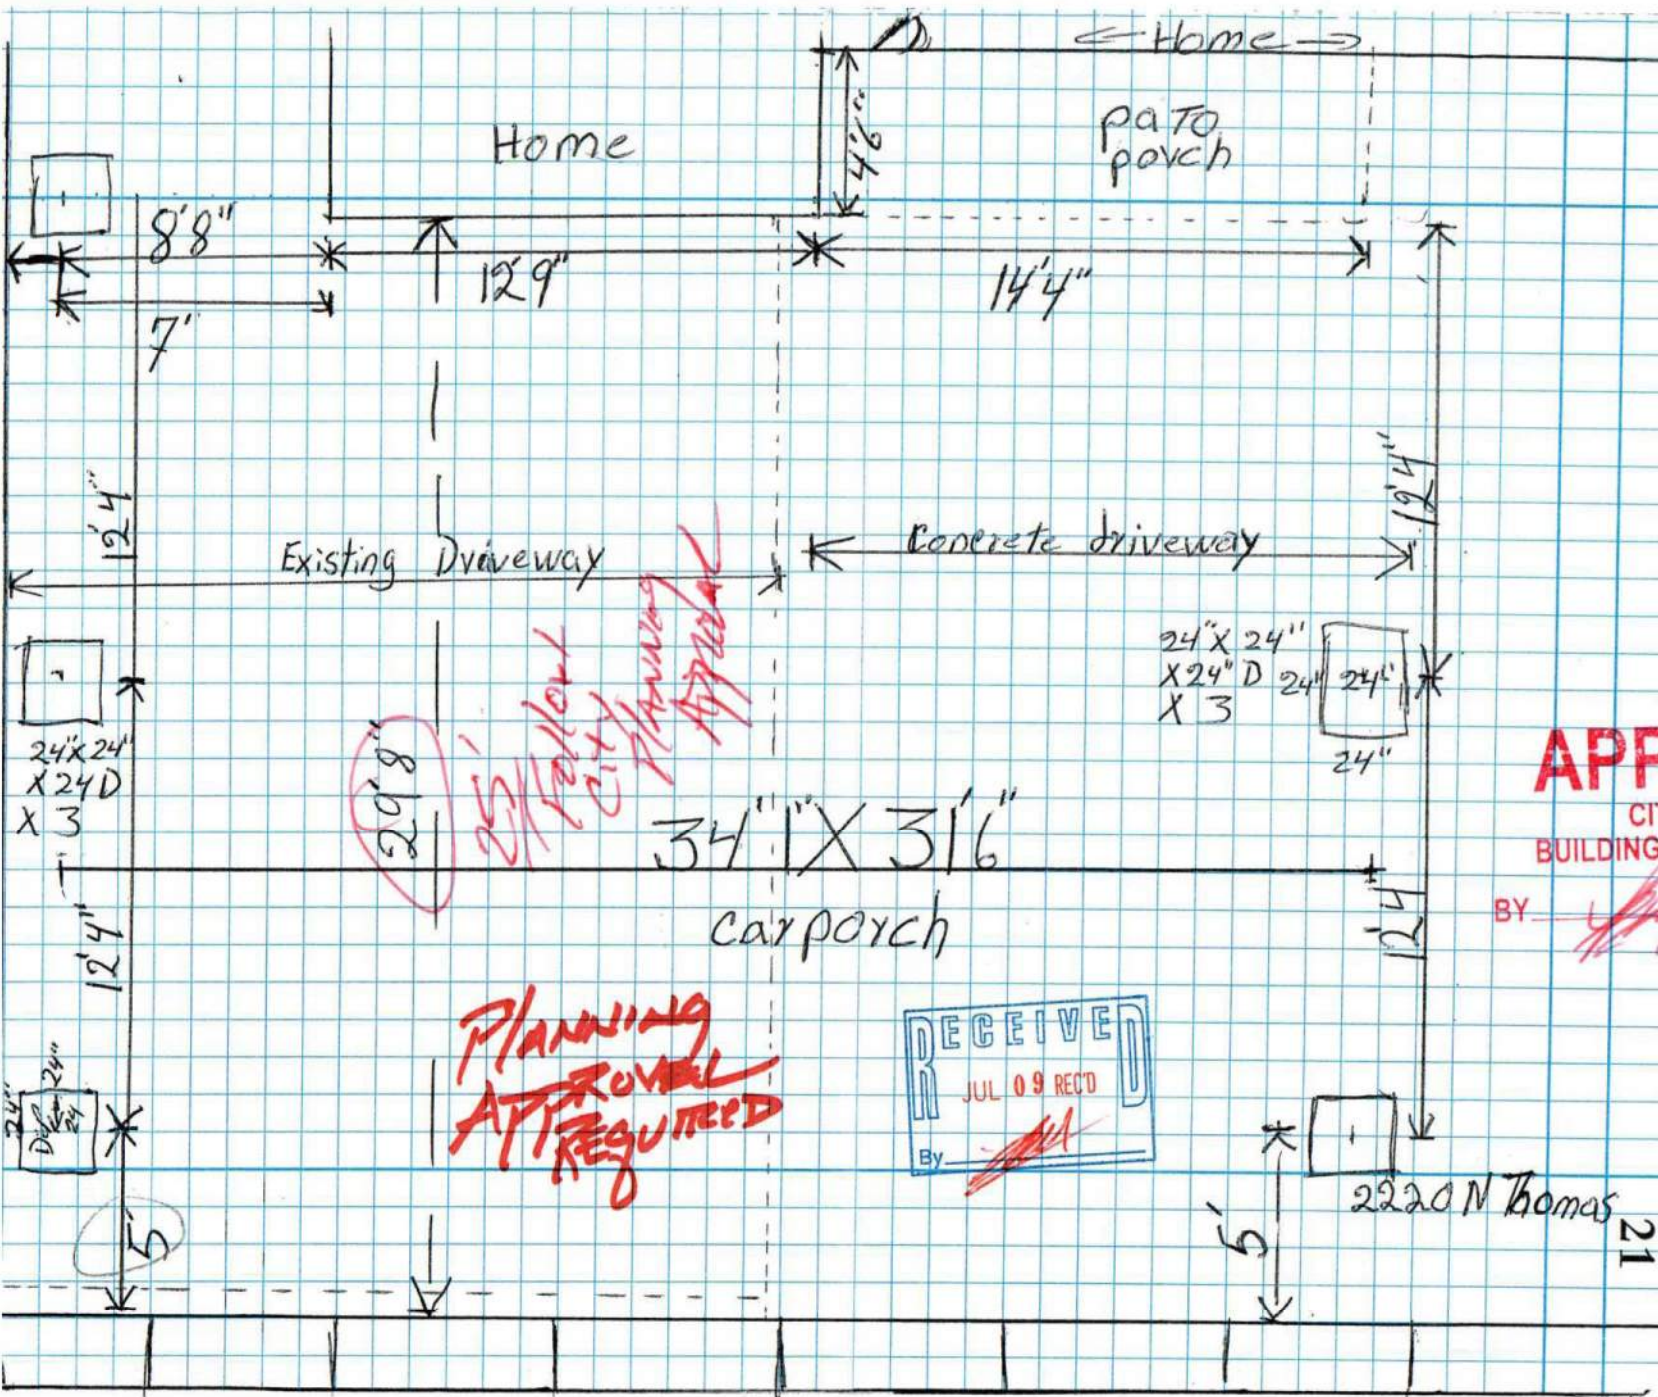 ← Home →
Home
4'6"
paTo
porch
8'8"
12'9"
14'4"
7'
12'4"
12'4"
Existing Driveway
Concrete driveway
24" X 24"
X 24" D
X 3
24"
24"
24"
24"X24"
X24D
X 3
29'8"
25'
Follow
City
Planning
Approval
34'1" X 31'6"
carporch
12'4"
12'4
APP
CI
BUILDING
BY
Planning
Approval
Required
RECEIVED
JUL 09 REC'D
By
24"
24"
24
5'
5'
2220 N Thomas
21